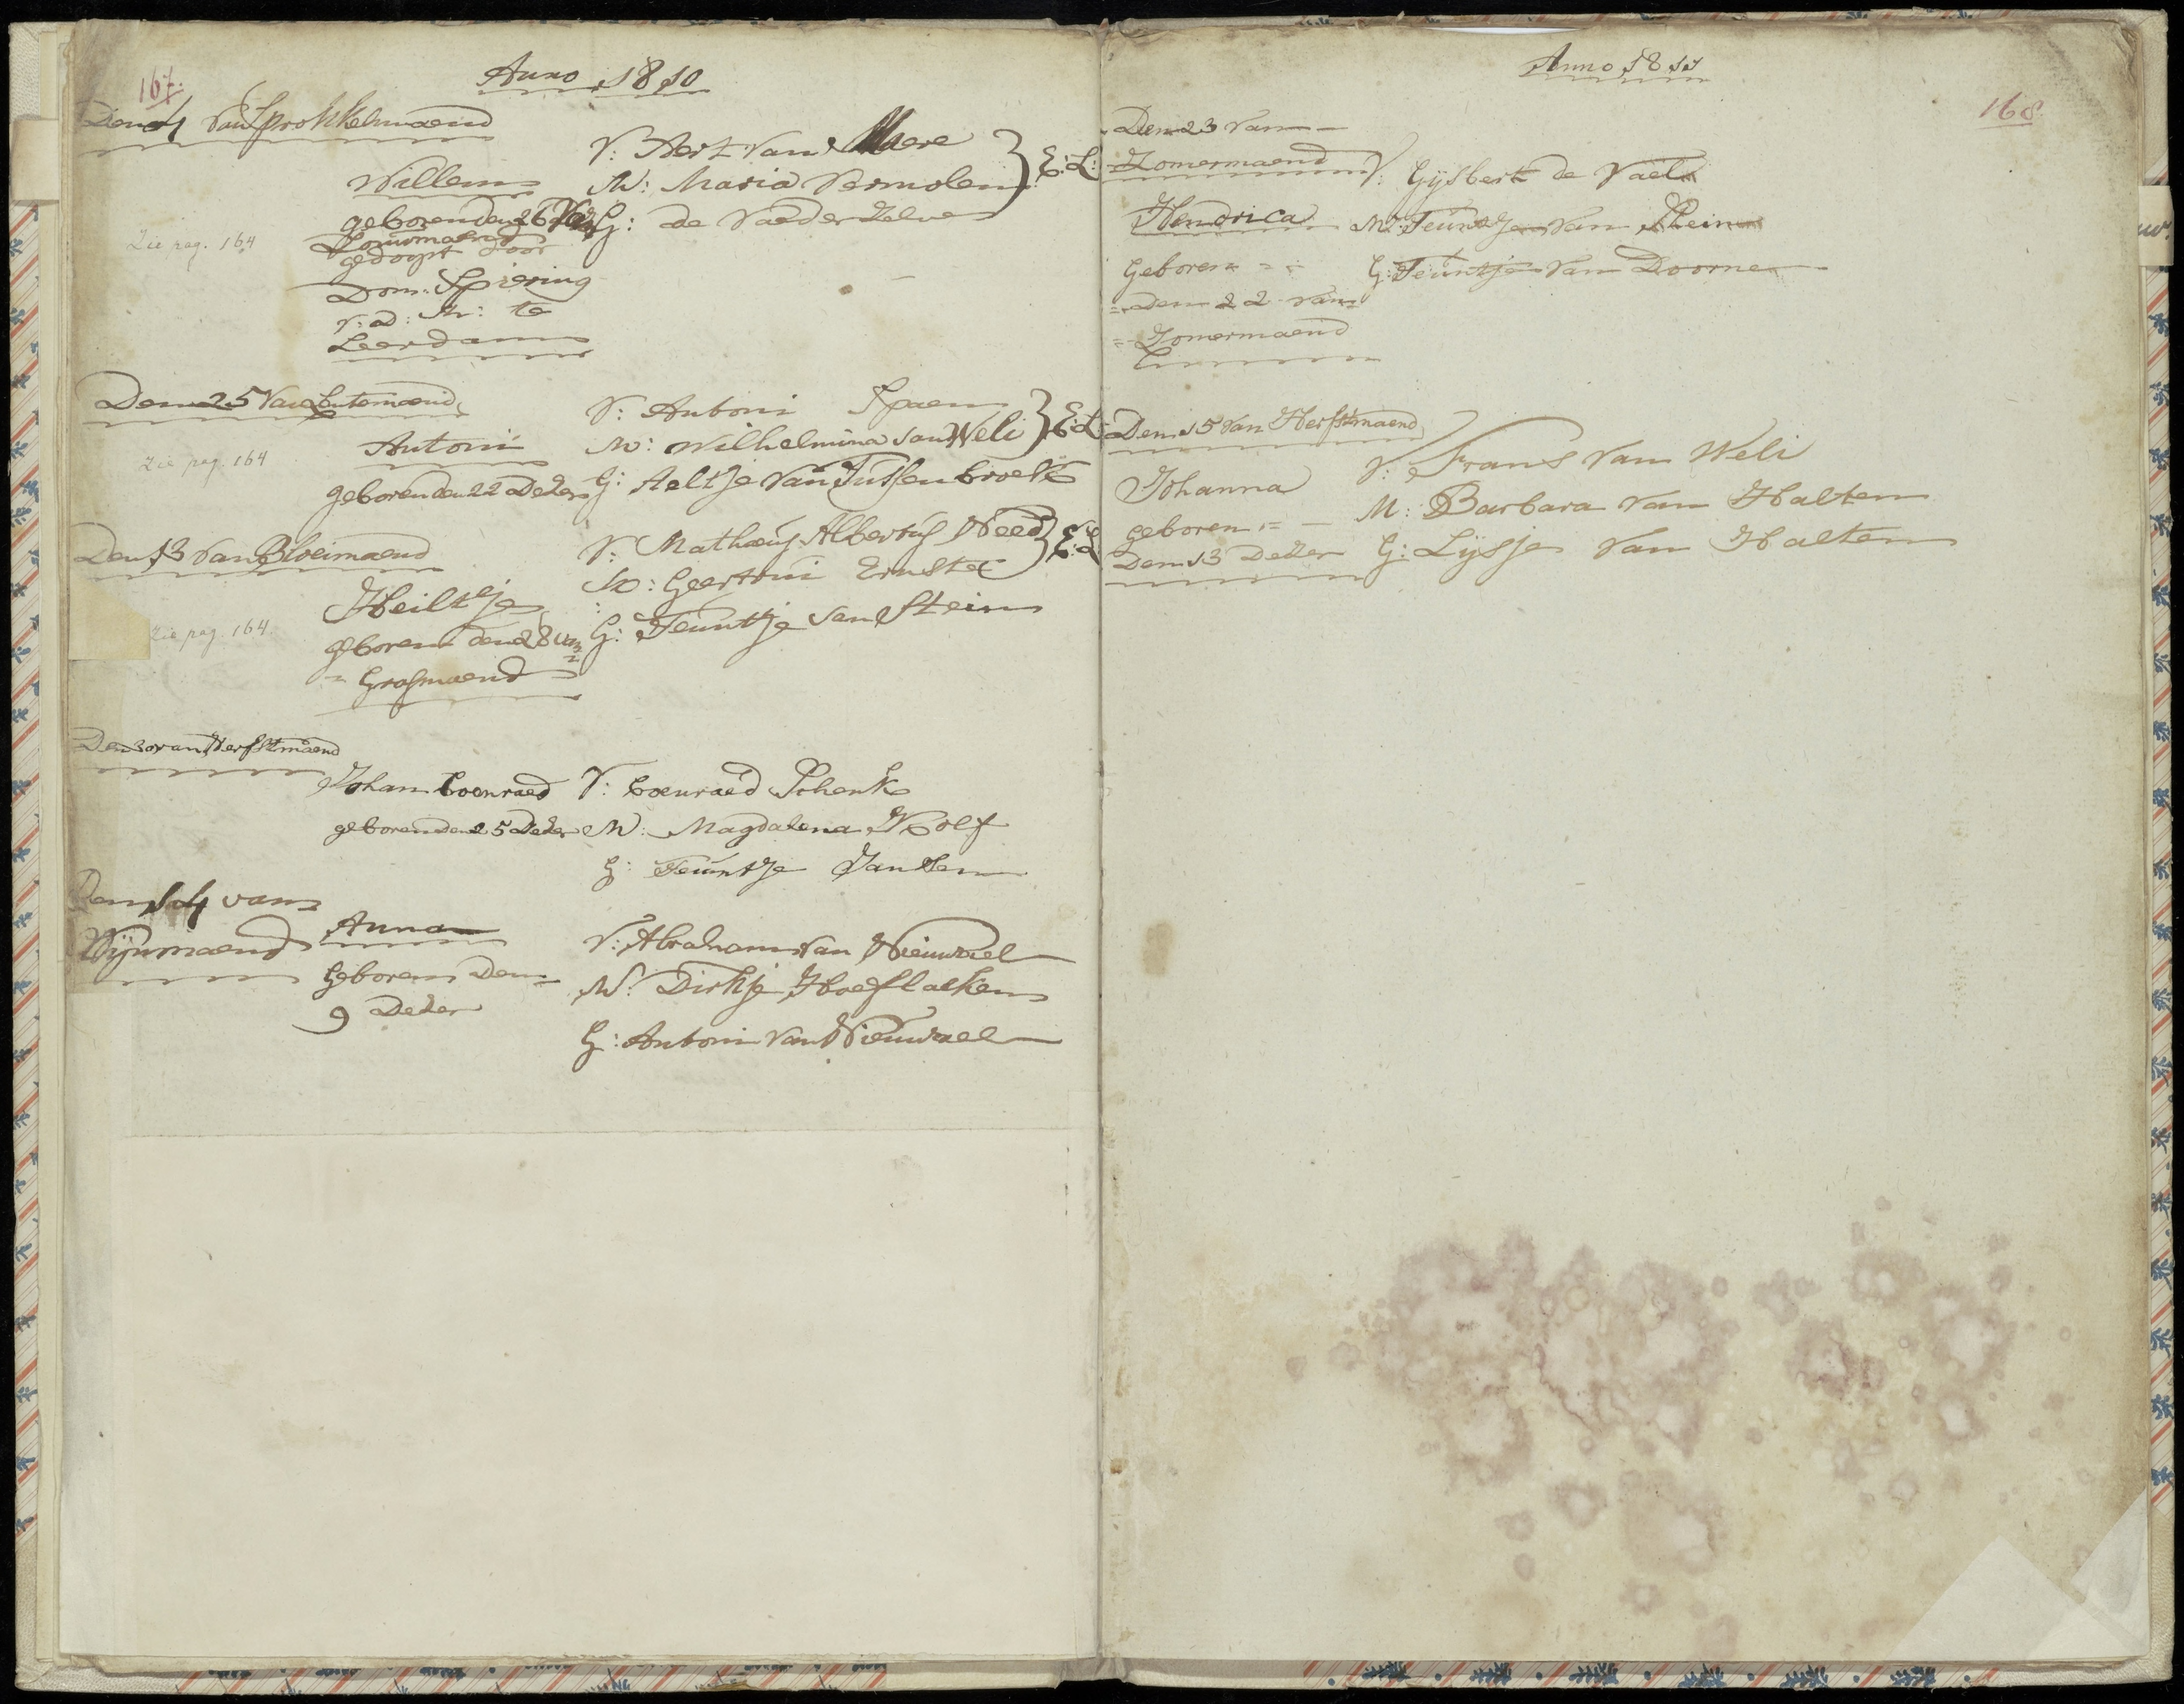 167.
Anno 1810
Den 4 van Sprokkelmaend
V: Aert van Mere
Willem
M: Maria Vermolen } E:L:
geboren den 26 van
G: de Vaeder Zelve
Louwmaend
Zie pag. 164
gedoopt door
Dom: Spiering
v: d: m: te
Leerdam
Den 25 van Lentemaend
V: Antoni Spaen
Antoni
M: Wilhelmina van Weli } E:L
Zie pag. 164
geboren den 22 Dezer
G: Aeltje van Tussenbroek
Den 13 van Bloeimaend
V: Mathæus Albertus Weed
M: Geertrui Ernste } E:L
Heiltje
G: Teuntje van Stein
Zie pag. 164.
geboren den 28 van
= Grasmaend
Den 30 van Herfstmaend
Johan Coenraed
V: Coenraed Schenk
geboren den 25 Dezer
M: Magdalena Wolf
G: Teuntje Janssen
Den 14 van
Wijnmaend
Anna
V: Abraham van Nieuwael
Geboren Den
M: Dirkje Hoeflaeken
9 Dezer
G: Antoni van Nieuwael
Anno 1811
168.
Den 23 van
Zomermaend
V: Gijsbert de Vael
Hendrica
M: Teuntje van Stein
Geboren
G: Teuntje van Doorne
= den 22 van
= Zomermaend
Den 15 van Herfstmaend
V: Frans van Weli
Johanna
M: Barbara van Halten
geboren =
Den 13 Dezer
G: Lijsje van Halten